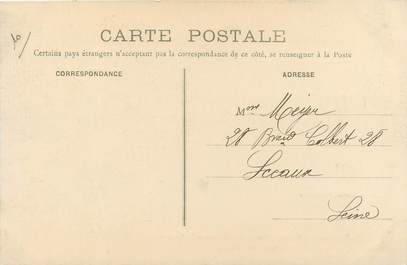 CARTE POSTALE
Certains pays étrangers n'acceptant pas la correspondance de ce côté, se renseigner à la Poste
CORRESPONDANCE
ADRESSE
Mme Meyer
28 Bvard Colbert 28
Sceaux
Seine